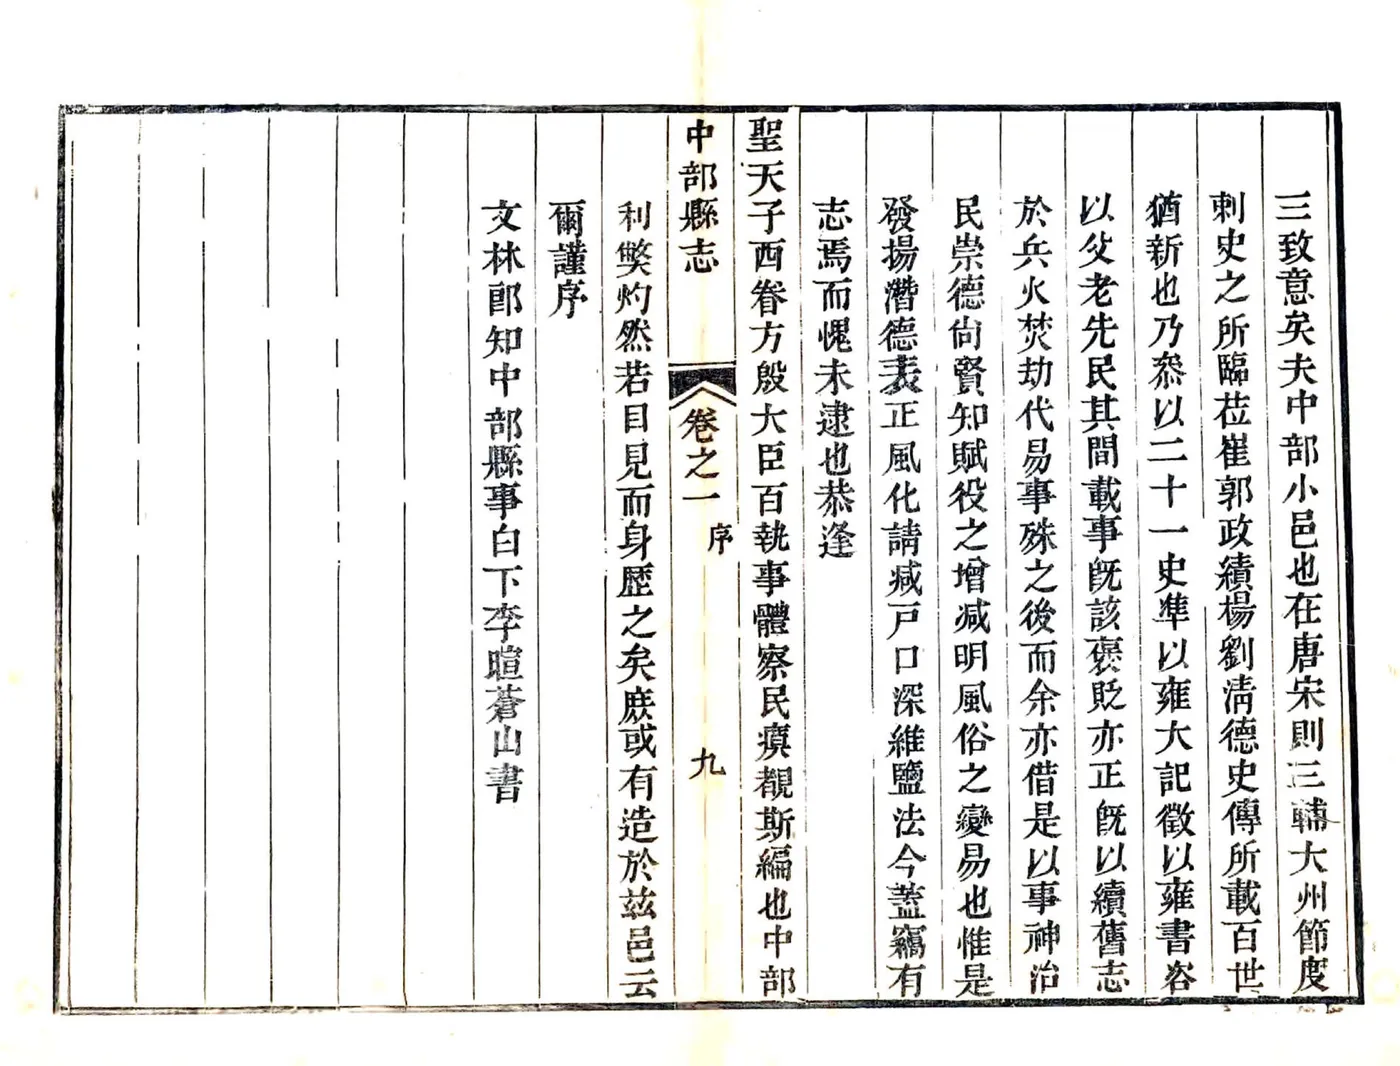 三致意矣夫中部小邑也在唐宋則三輔大州節度
刺史之所臨莅崔郭政績楊劉清德史傳所載百世
猶新也乃叅以二十一史準以雍大記徵以雍書咨
以父老先民其間載事旣該褒貶亦正旣以續舊志
於兵火焚劫代易事殊之後而余亦借是以事神治
民崇德尙賢知賦役之增减明風俗之變易也惟是
發揚潛德表正風化請减戸口深維鹽法今蓋竊有
志焉而愧未逮也恭逢
聖天子西眷方殷大臣百執事體察民瘼覩斯編也中部
中部縣志
卷之一
序
九
利獘灼然若目見而身歴之矣庶或有造於兹邑云
爾謹序
文林郎知中部縣事白下李暄蒼山書